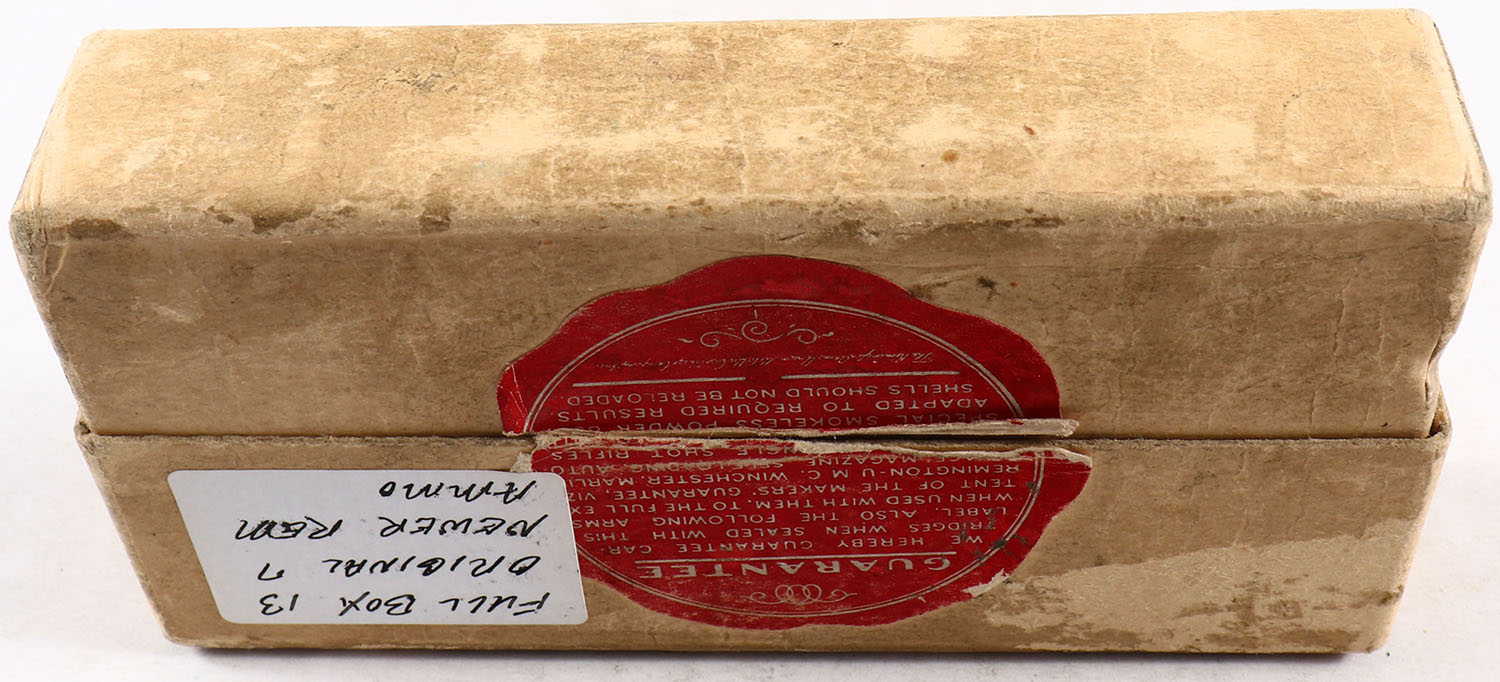 GUARANTEE
WE HEREBY GUARANTEE CAR-
TRIDGES WHEN SEALED WITH THIS
LABEL, ALSO THE FOLLOWING ARMS
WHEN USED WITH THEM, TO THE FULL EX-
TENT OF THE MAKERS' GUARANTEE, VIZ
REMINGTON-U M C WINCHESTER, MARL
MAGAZINE, SELF LOADING, AUTO
SINGLE SHOT RIFLES
SPECIAL SMOKELESS POWDER
ADAPTED TO REQUIRED RESULTS
SHELLS SHOULD NOT BE RELOADED.
FULL BOX 13
ORIGINAL 7
NEWER REM
AMMO